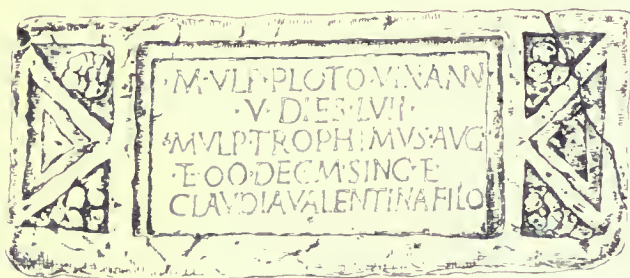 ·M·VLP·PLOTO·VIX·ANN·
·V·DIES·LVII·
·M·VLP·TROPHIMVS·AVG
·E·OO·DEC·M·SING·E·
CLAVDIA VALENTINA FILO